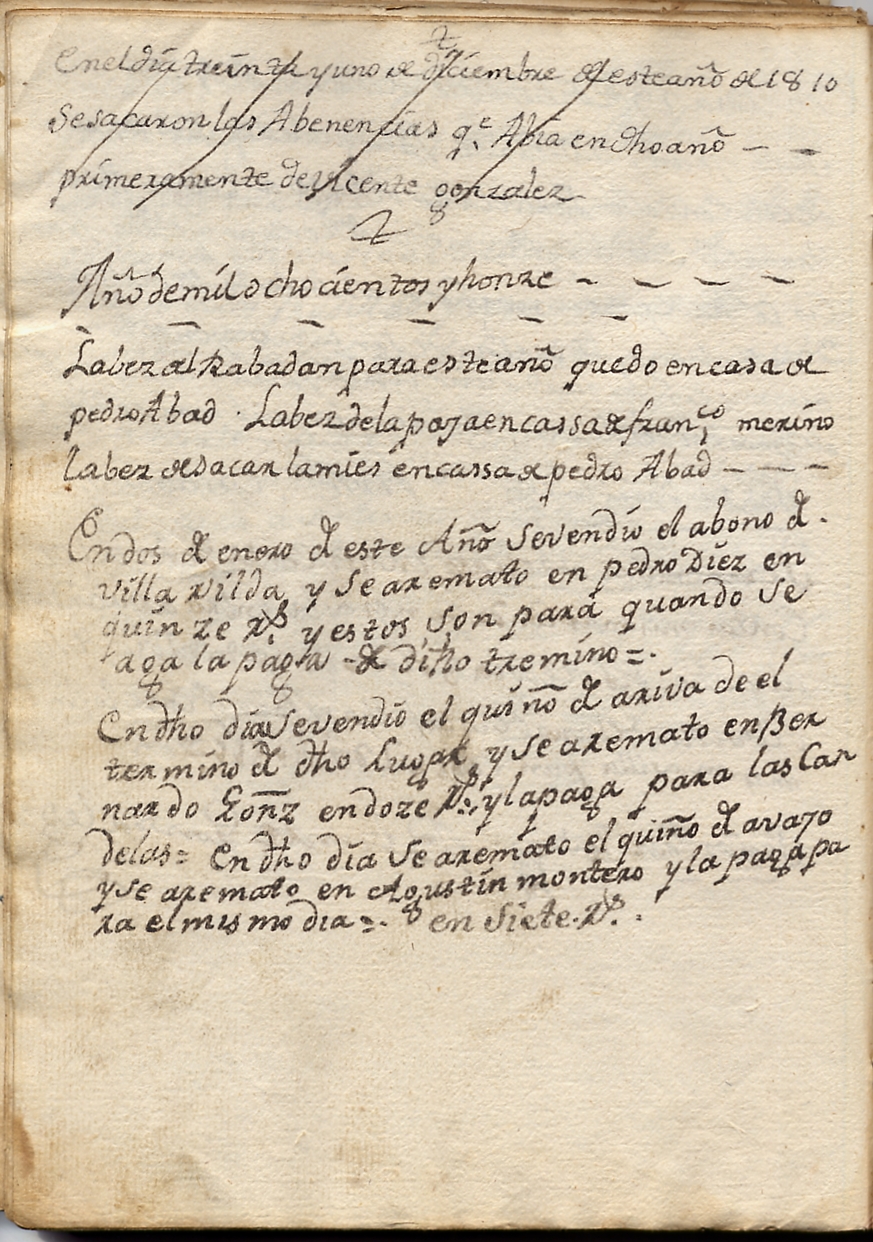 En el día treinta y uno de diciembre de este año de 1810
Se sacaron las Abenencias q.e Abia en dho año — —
primeramente de Vicente gonzalez
Año de mil ochocientos y honze — — — —
La bez del Rabadan para este año quedo en casa de
pedro Abad · La bez de la paja en cassa de fran.co merino
la bez de sacar la mies en cassa de pedro Abad — — —
En dos de enero de este Año se vendio el abono de
villa rilda y se aremato en pedro Diez en
quinze r.s y estos son para quando se
aga la paga de diho tremino =.
En dho dia se vendio el quiñó de ariva de el
termino de dho Lugar y se aremato en Ber
nardo Gonz en doze r.s y la paga para las Can
delas = En dho dia se aremato el quiño de avajo
y se aremato en Agustin montero y la paga pa
ra el mismo dia =. en siete r.s.